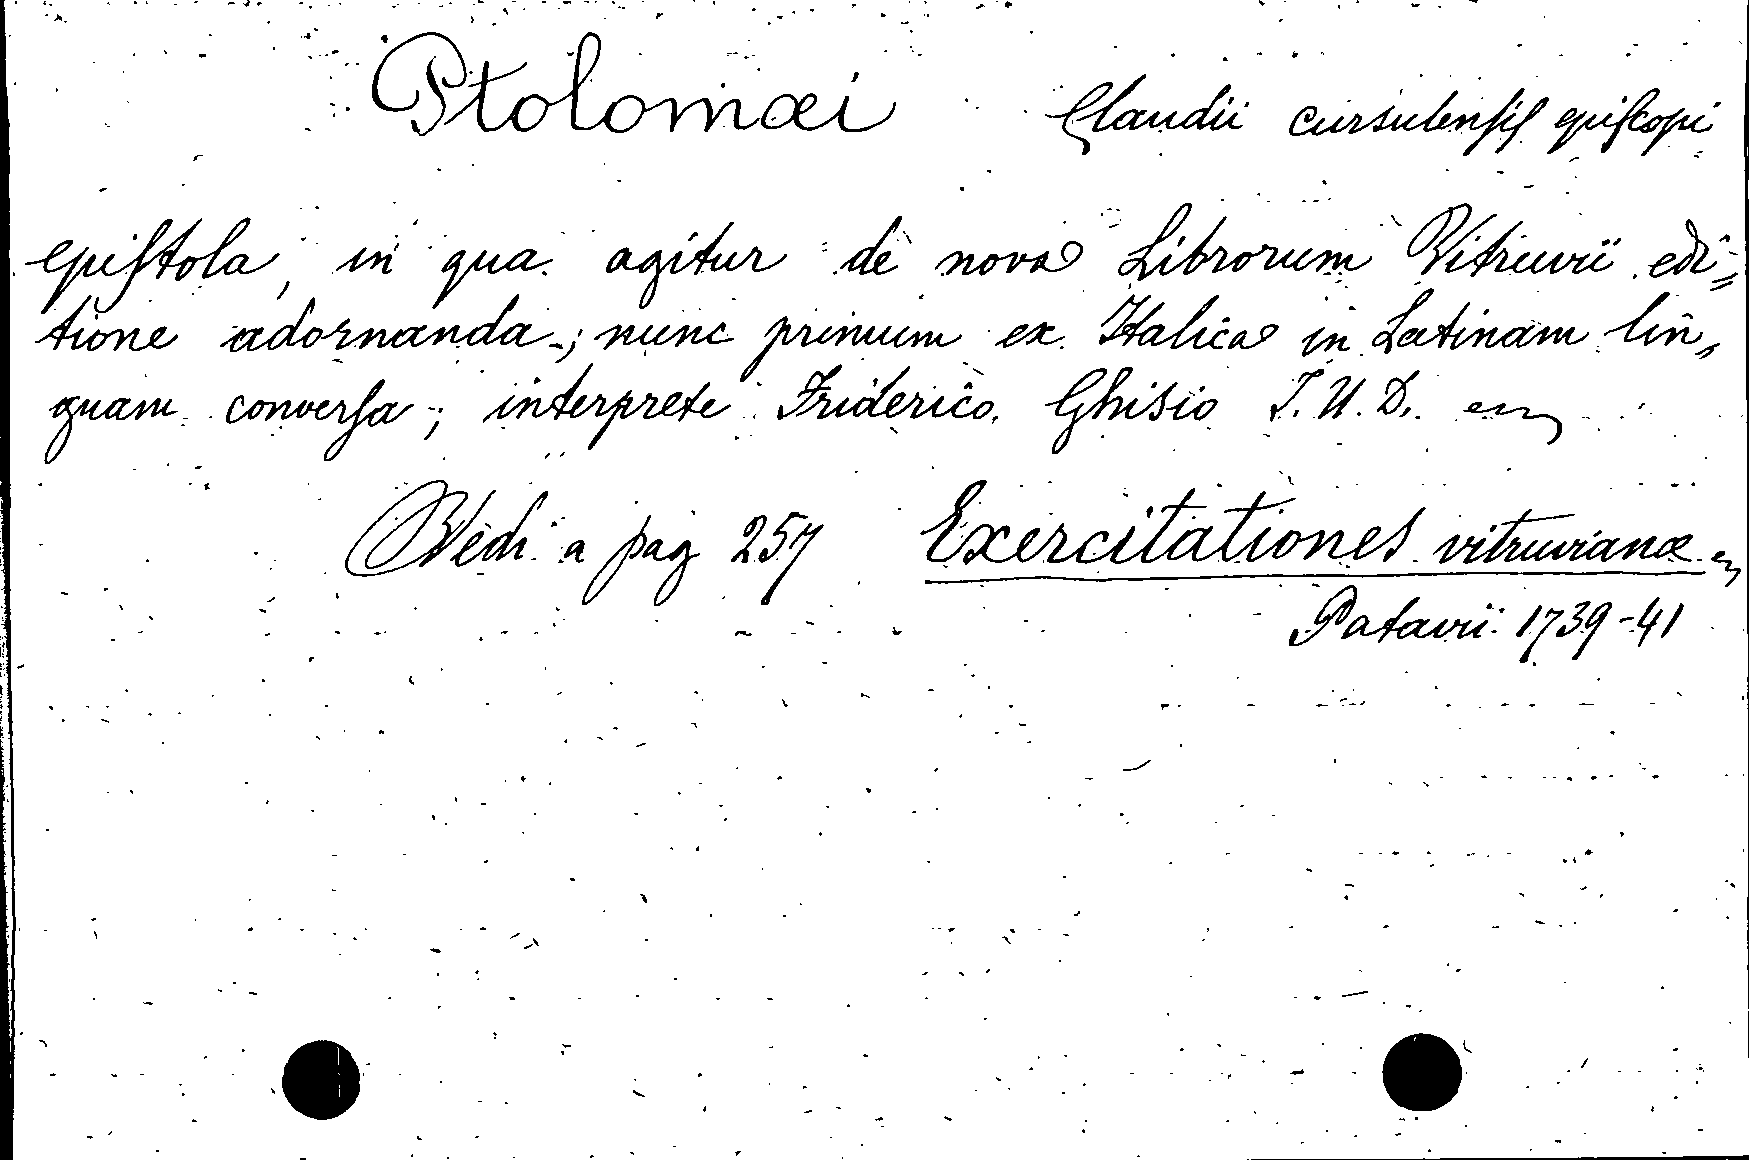 Ptolomæi Claudii cursulensis episcopi
epistola, in qua agitur de nova Librorum Vitruvii edi=
tione adornanda; nunc primum ex Italica in Latinam lin,
guam conversa; interprete Friderico Ghisio I. U. D.
Vedi a pag 257 Exercitationes vitruvianæ
Patavii 1739-41